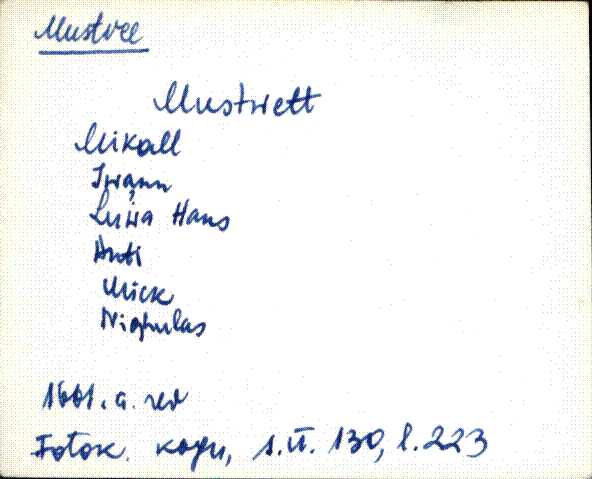 Mustvee
Mustwett
Mikall
Iwann
Luwa Hans
Anti
Mick
Nighulas
1601. a. rev
Fotok. kogu, s.ü. 130, l. 223